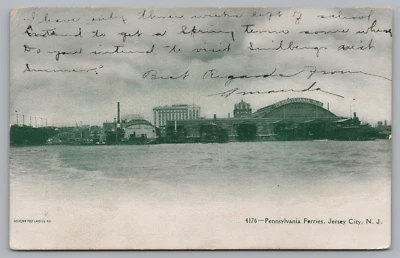 I have only three weeks left of school
Intend to get a Spring term some where
Do you intend to visit Lindberg west
Summer?
Best Regards From
Amanda
4176—Pennsylvania Ferries, Jersey City, N. J.